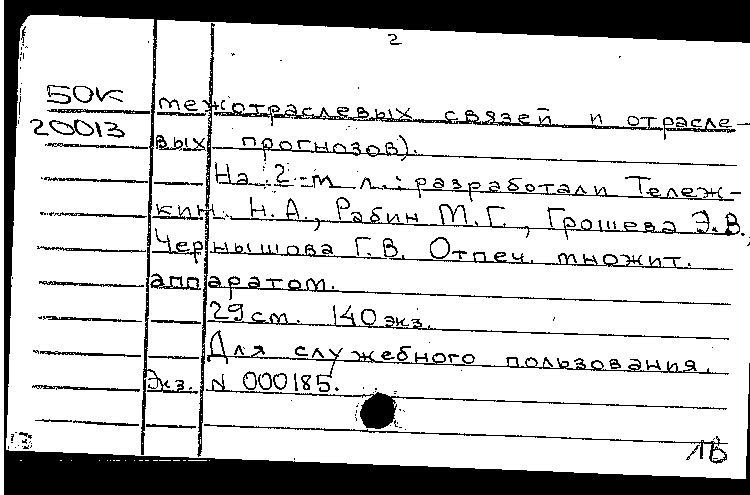 2
50К межотраслевых связей и отрасле-
20013 вых прогнозов).
На 2-м л.: разработали Тележ-
кин Н.А., Рабин М.Г., Грошева Э.В.,
Чернышова Г.В. Отпеч. множит.
аппаратом.
29 см. 140 экз.
Для служебного пользования.
Экз. N 000185.
1В